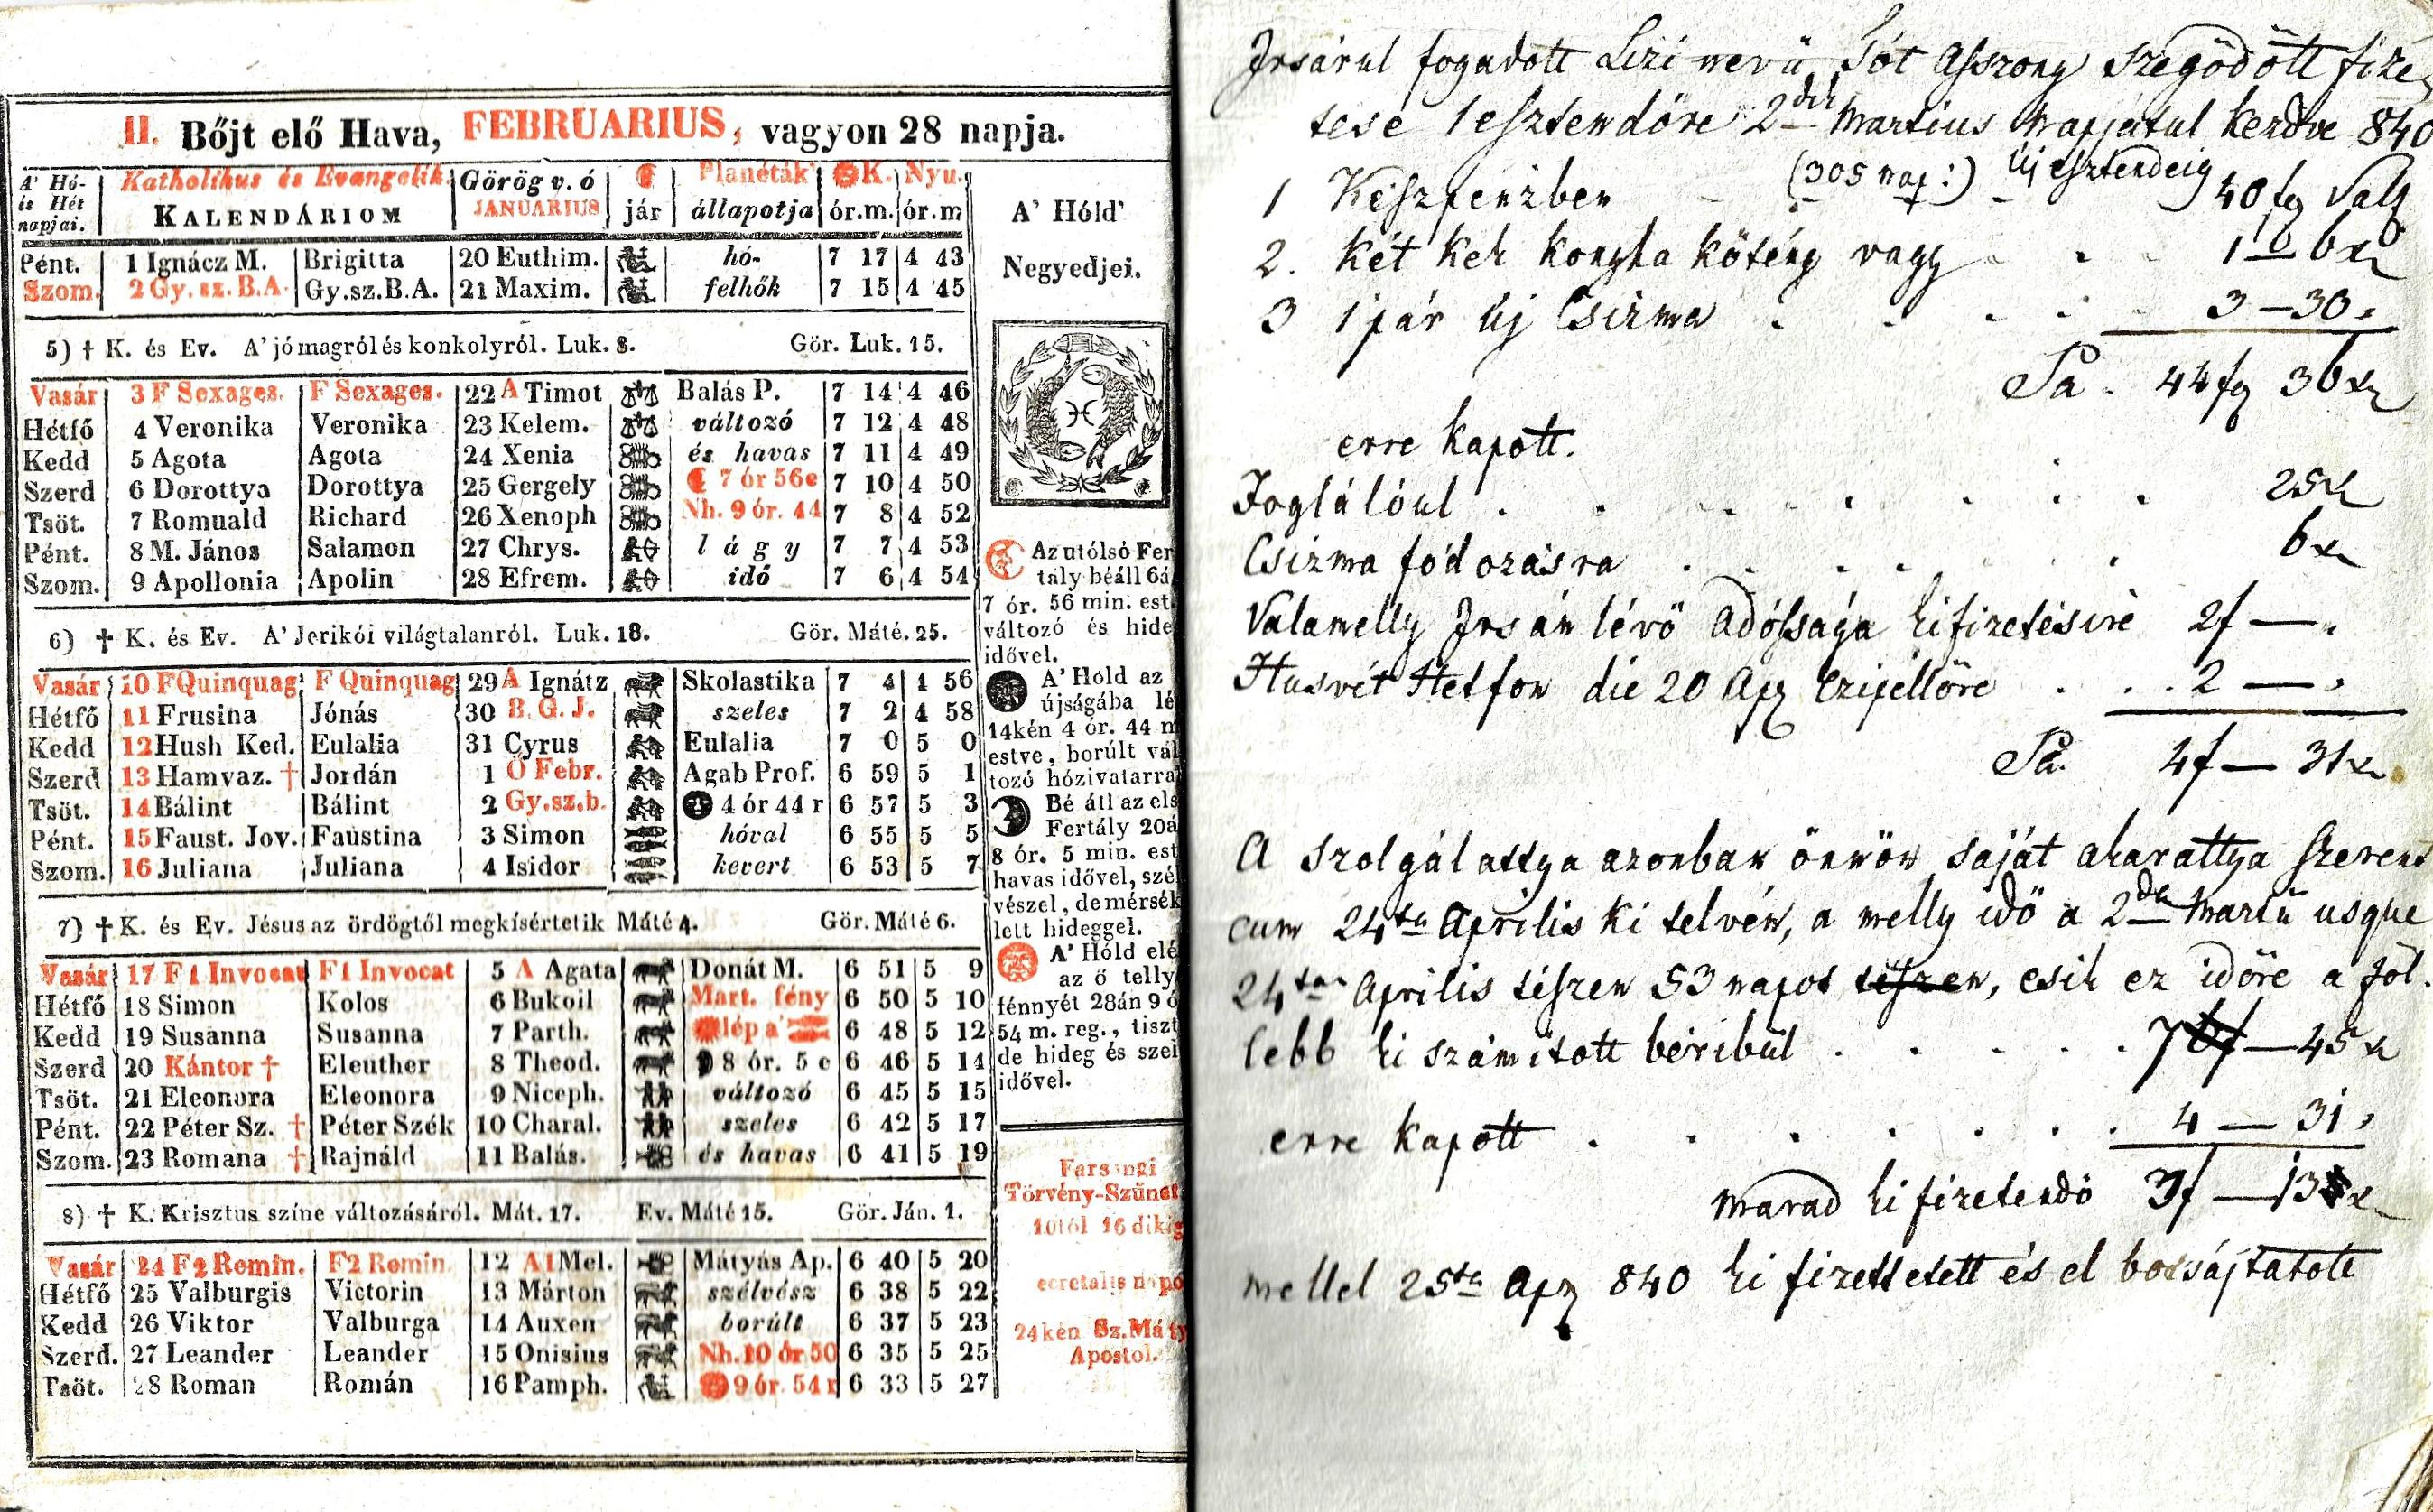 II. Bőjt elő Hava, FEBRUARIUS, vagyon 28 napja.
A' Hó- és Hét napjai. | Katholikus és Evangelik. KALENDÁRIOM | Görög v. ó JANUARIUS | jár | Planéták' állapotja | K. ór.m. | Nyu. ór.m
Pént. 1 Ignácz M. Brigitta 20 Euthim. hó- 7 17 4 43
Szom. 2 Gy. sz. B.A. Gy.sz.B.A. 21 Maxim. felhők 7 15 4 45
5) † K. és Ev. A' jó magról és konkolyról. Luk. 8. Gör. Luk. 15.
Vasár 3 F Sexages. F Sexages. 22 A Timot Balás P. 7 14 4 46
Hétfő 4 Veronika Veronika 23 Kelem. változó 7 12 4 48
Kedd 5 Agota Agota 24 Xenia és havas 7 11 4 49
Szerd 6 Dorottya Dorottya 25 Gergely 7 ór 56e 7 10 4 50
Tsöt. 7 Romuald Richard 26 Xenoph Nh. 9 ór. 44 7 8 4 52
Pént. 8 M. János Salamon 27 Chrys. lágy 7 7 4 53
Szom. 9 Apollonia Apolin 28 Efrem. idő 7 6 4 54
6) † K. és Ev. A' Jerikói világtalanról. Luk. 18. Gör. Máté. 25.
Vasár 10 F Quinquag F Quinquag 29 A Ignátz Skolastika 7 4 4 56
Hétfő 11 Frusina Jónás 30 B. G. J. szeles 7 2 4 58
Kedd 12 Hush Ked. Eulalia 31 Cyrus Eulalia 7 0 5 0
Szerd 13 Hamvaz. † Jordán 1 Ő Febr. Agab Prof. 6 59 5 1
Tsöt. 14 Bálint Bálint 2 Gy.sz.b. 4 ór 44 r 6 57 5 3
Pént. 15 Faust. Jov. Faustina 3 Simon hóval 6 55 5 5
Szom. 16 Juliana Juliana 4 Isidor kevert 6 53 5 7
7) † K. és Ev. Jésus az ördögtől megkísértetik Máté 4. Gör. Máté 6.
Vasár 17 F 1 Invocat F 1 Invocat 5 A Agata Donát M. 6 51 5 9
Hétfő 18 Simon Kolos 6 Bukoil Mart. fény 6 50 5 10
Kedd 19 Susanna Susanna 7 Parth. lép a' 6 48 5 12
Szerd 20 Kántor † Eleuther 8 Theod. 8 ór. 5 e 6 46 5 14
Tsöt. 21 Eleonora Eleonora 9 Niceph. változó 6 45 5 15
Pént. 22 Péter Sz. † Péter Szék 10 Charal. szeles 6 42 5 17
Szom. 23 Romana † Rajnáld 11 Balás. és havas 6 41 5 19
8) † K. Krisztus színe változásáról. Mát. 17. Ev. Máté 15. Gör. Ján. 1.
Vasár 24 F 2 Remin. F 2 Remin. 12 A1 Mel. Mátyás Ap. 6 40 5 20
Hétfő 25 Valburgis Victorin 13 Márton szélvész 6 38 5 22
Kedd 26 Viktor Valburga 14 Auxen borúlt 6 37 5 23
Szerd. 27 Leander Leander 15 Onisius Nh. 10 ór 50 6 35 5 25
Tsöt. 28 Roman Román 16 Pamph. 9 ór. 54 r 6 33 5 27
A' Hóld'
Negyedjei.
Az utólsó Fer
tály béáll 6á
7 ór. 56 min. est.
változó és hide
idővel.
A' Hold az
újságába lé
14kén 4 ór. 44 m
estve, borúlt vál
tozó hózivatarra
Bé áll az els
Fertály 20á
8 ór. 5 min. est
havas idővel, szé
vészel, de mérsék
lett hideggel.
A' Hóld elé
az ő telly
fénnyét 28án 9 ó
54 m. reg., tiszt
de hideg és szei
idővel.
Farsangi
Törvény-Szünet
10től 16dikig
24kén Sz. Máty
Apostol.
Irsárul fogadott Lizi nevü Tót Asszony szegödött fize
tese 1 esztendőre 2dik Martius Napjátul kezdve 840
(305 nap:) Uj esztendeig
1 Készpénzben 40 fg Valt
2. két kék konyha kötény vagy 1 — 6 xr
3 1 pár uj Csizma 3 — 30.
Sa. 44 fg 36 xr
erre kapott.
Foglálóul 25 xr
Csizma fódozásra 6 xr
Valamelly Irsán lévö adóssága kifizetésire 2f —
Husvét Hetfon die 20 Apr Czipéllőre 2 —
Sa. 4f — 31 xr
A szolgálattya azonban önnön saját akarattya szerent
cum 24ta Aprilis ki telvén, a melly idő a 2da Martii usque
24tam Aprilis tészen 53 napot tészen, esik ez időre a föl.
lebb ki számitott béribül 7 f — 45 x
erre kapott 4 — 31.
marad kifizetendő 3f — 13 x
mellel 25ta Apr 840 ki fizettetett és el botsájtatott